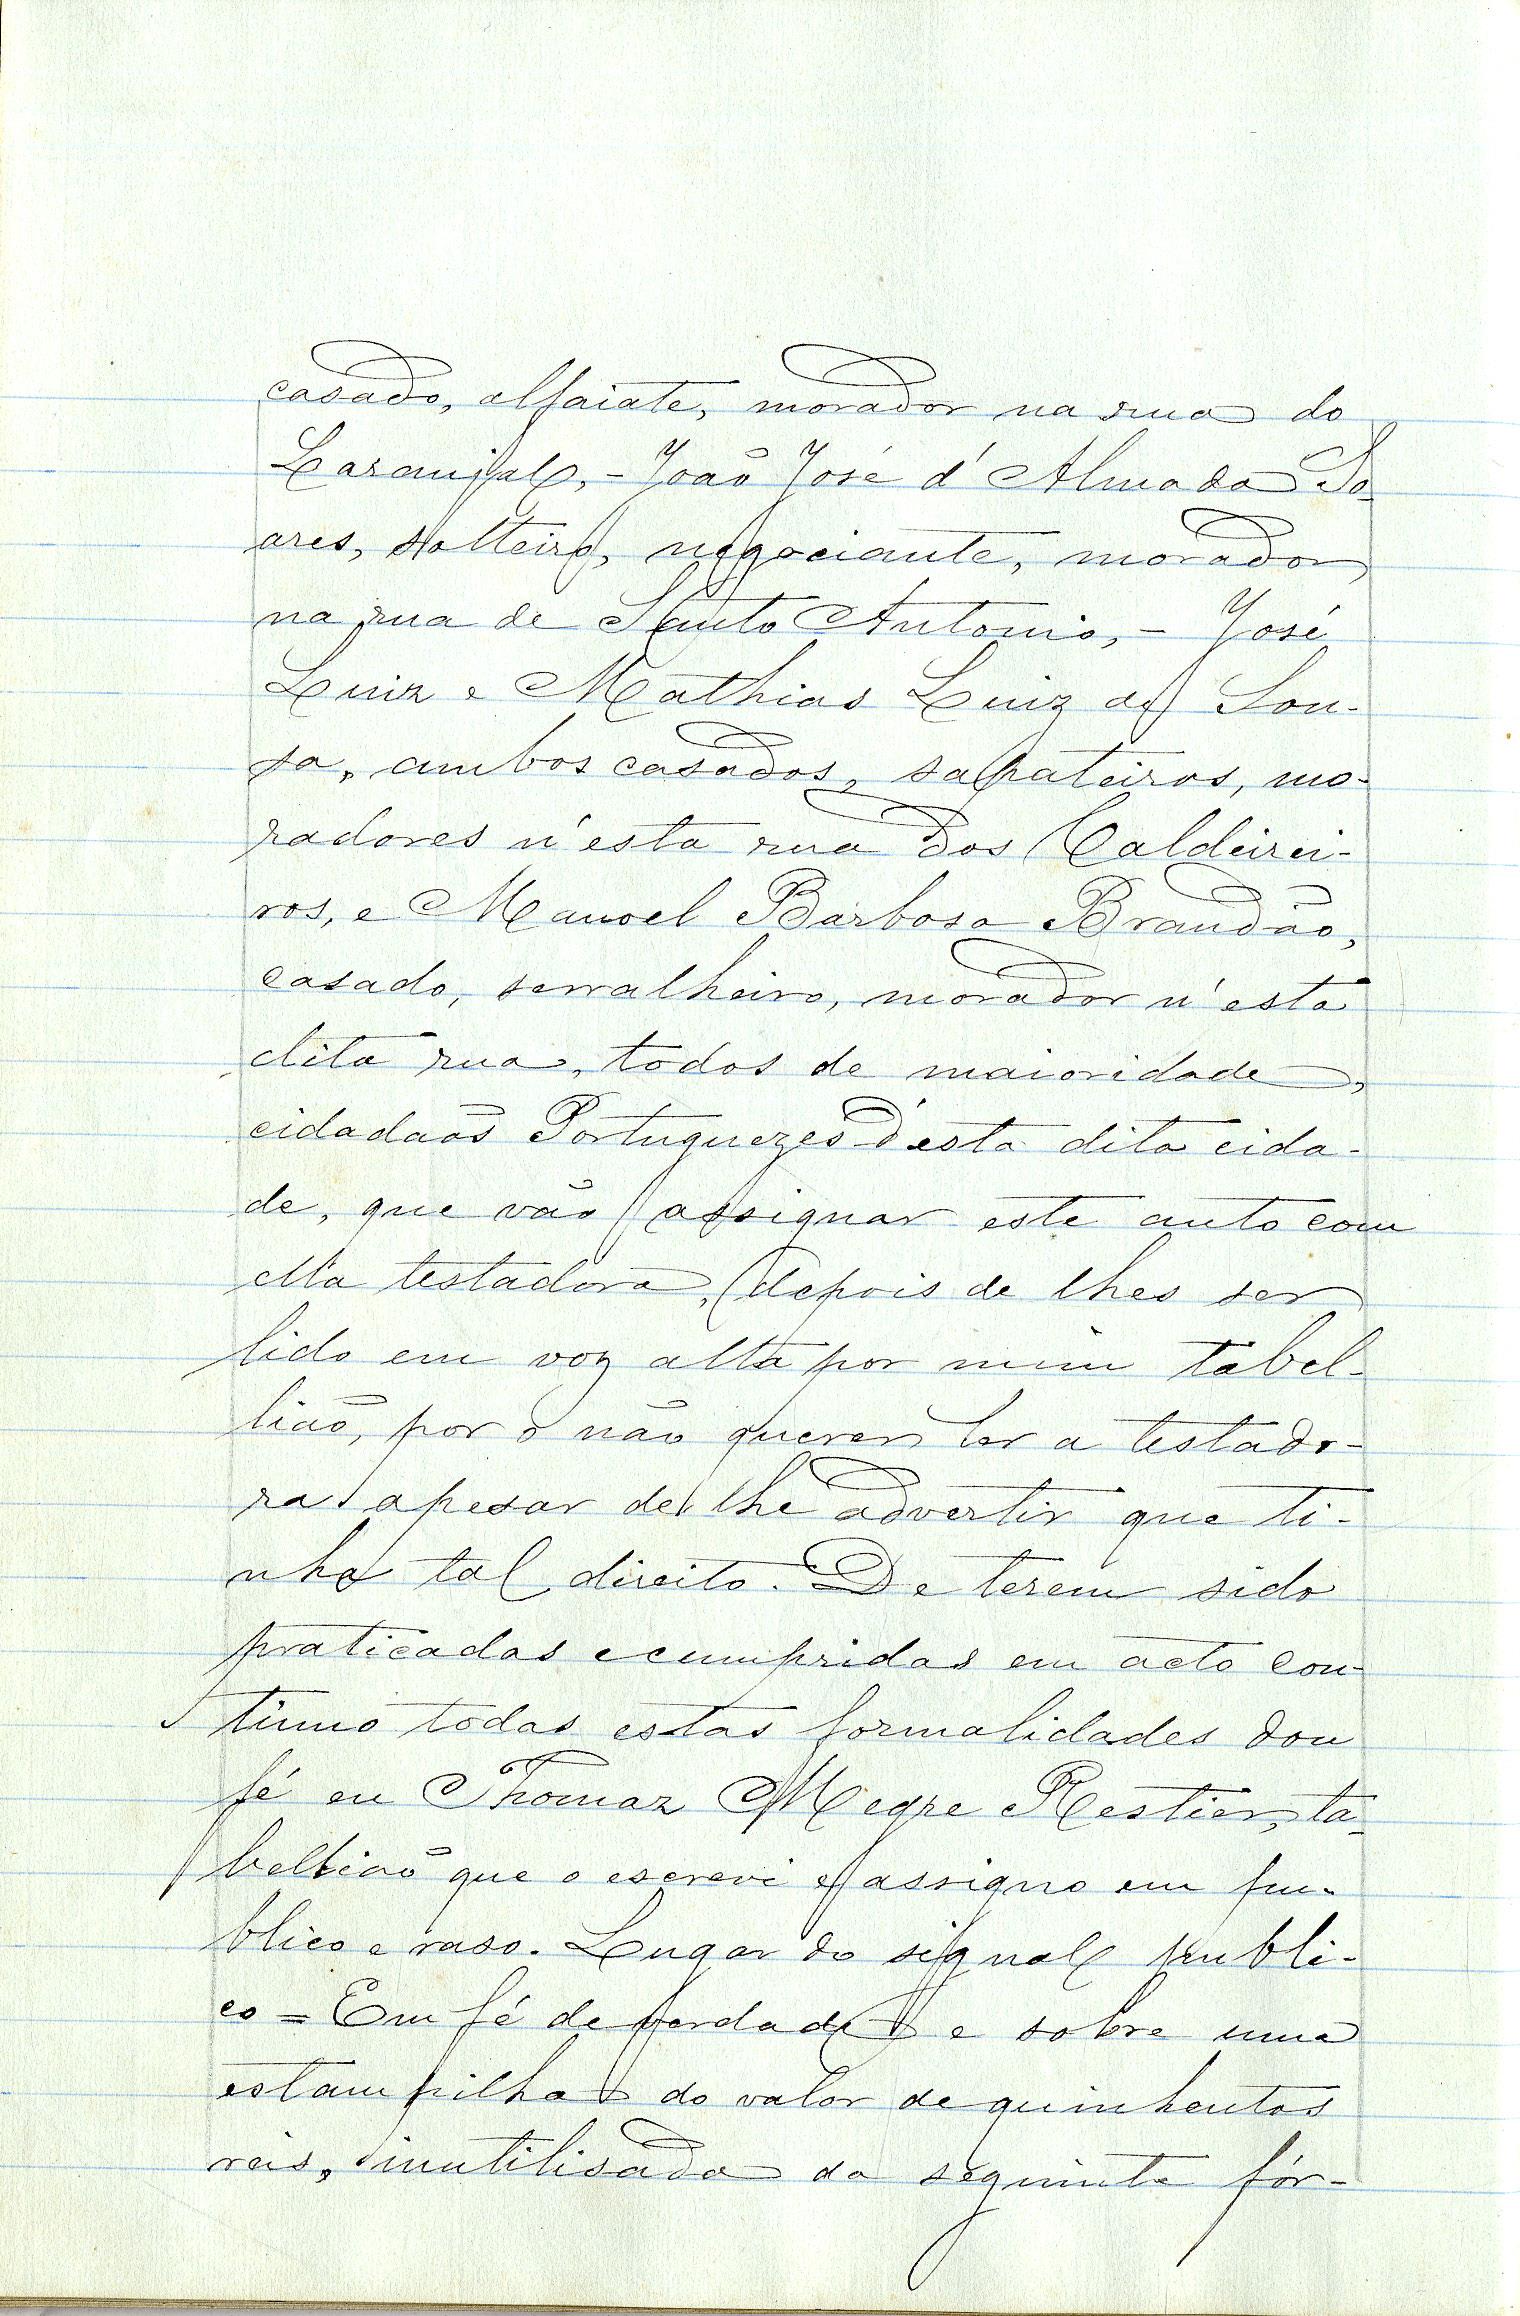 casado, alfaiate, morador na rua do
Laranjal, - João José d'Almada So-
ares, solteiro, negociante, morador
na rua de Santo Antonio, - José
Luiz e Mathias Luiz de Sou-
sa, ambos casados, sapateiros, mo-
radores n'esta rua dos Caldeirei-
ros, e Manoel Barbosa Brandão,
casado, serralheiro, morador n'esta
dita rua, todos de maioridade,
cidadaõs Portuguezes d'esta dita cida-
de, que vão assignar este auto com
ella testadora, depois de lhes ser
lido em voz alta por mim tabel-
lião, por o não querer ler a testado-
ra apesar de lhe advertir que ti-
nha tal direito. De terem sido
praticadas e cumpridas em acto con-
tinuo todas estas formalidades dou
fé eu Thomaz Megre Restier, ta-
bellião que o escrevi e assigno em pu-
blico e raso. Lugar do signal publi-
co = Em fé de verdade e sobre uma
estampilha do valor de quinhentos
reis, inutilisada da seguinte fór-